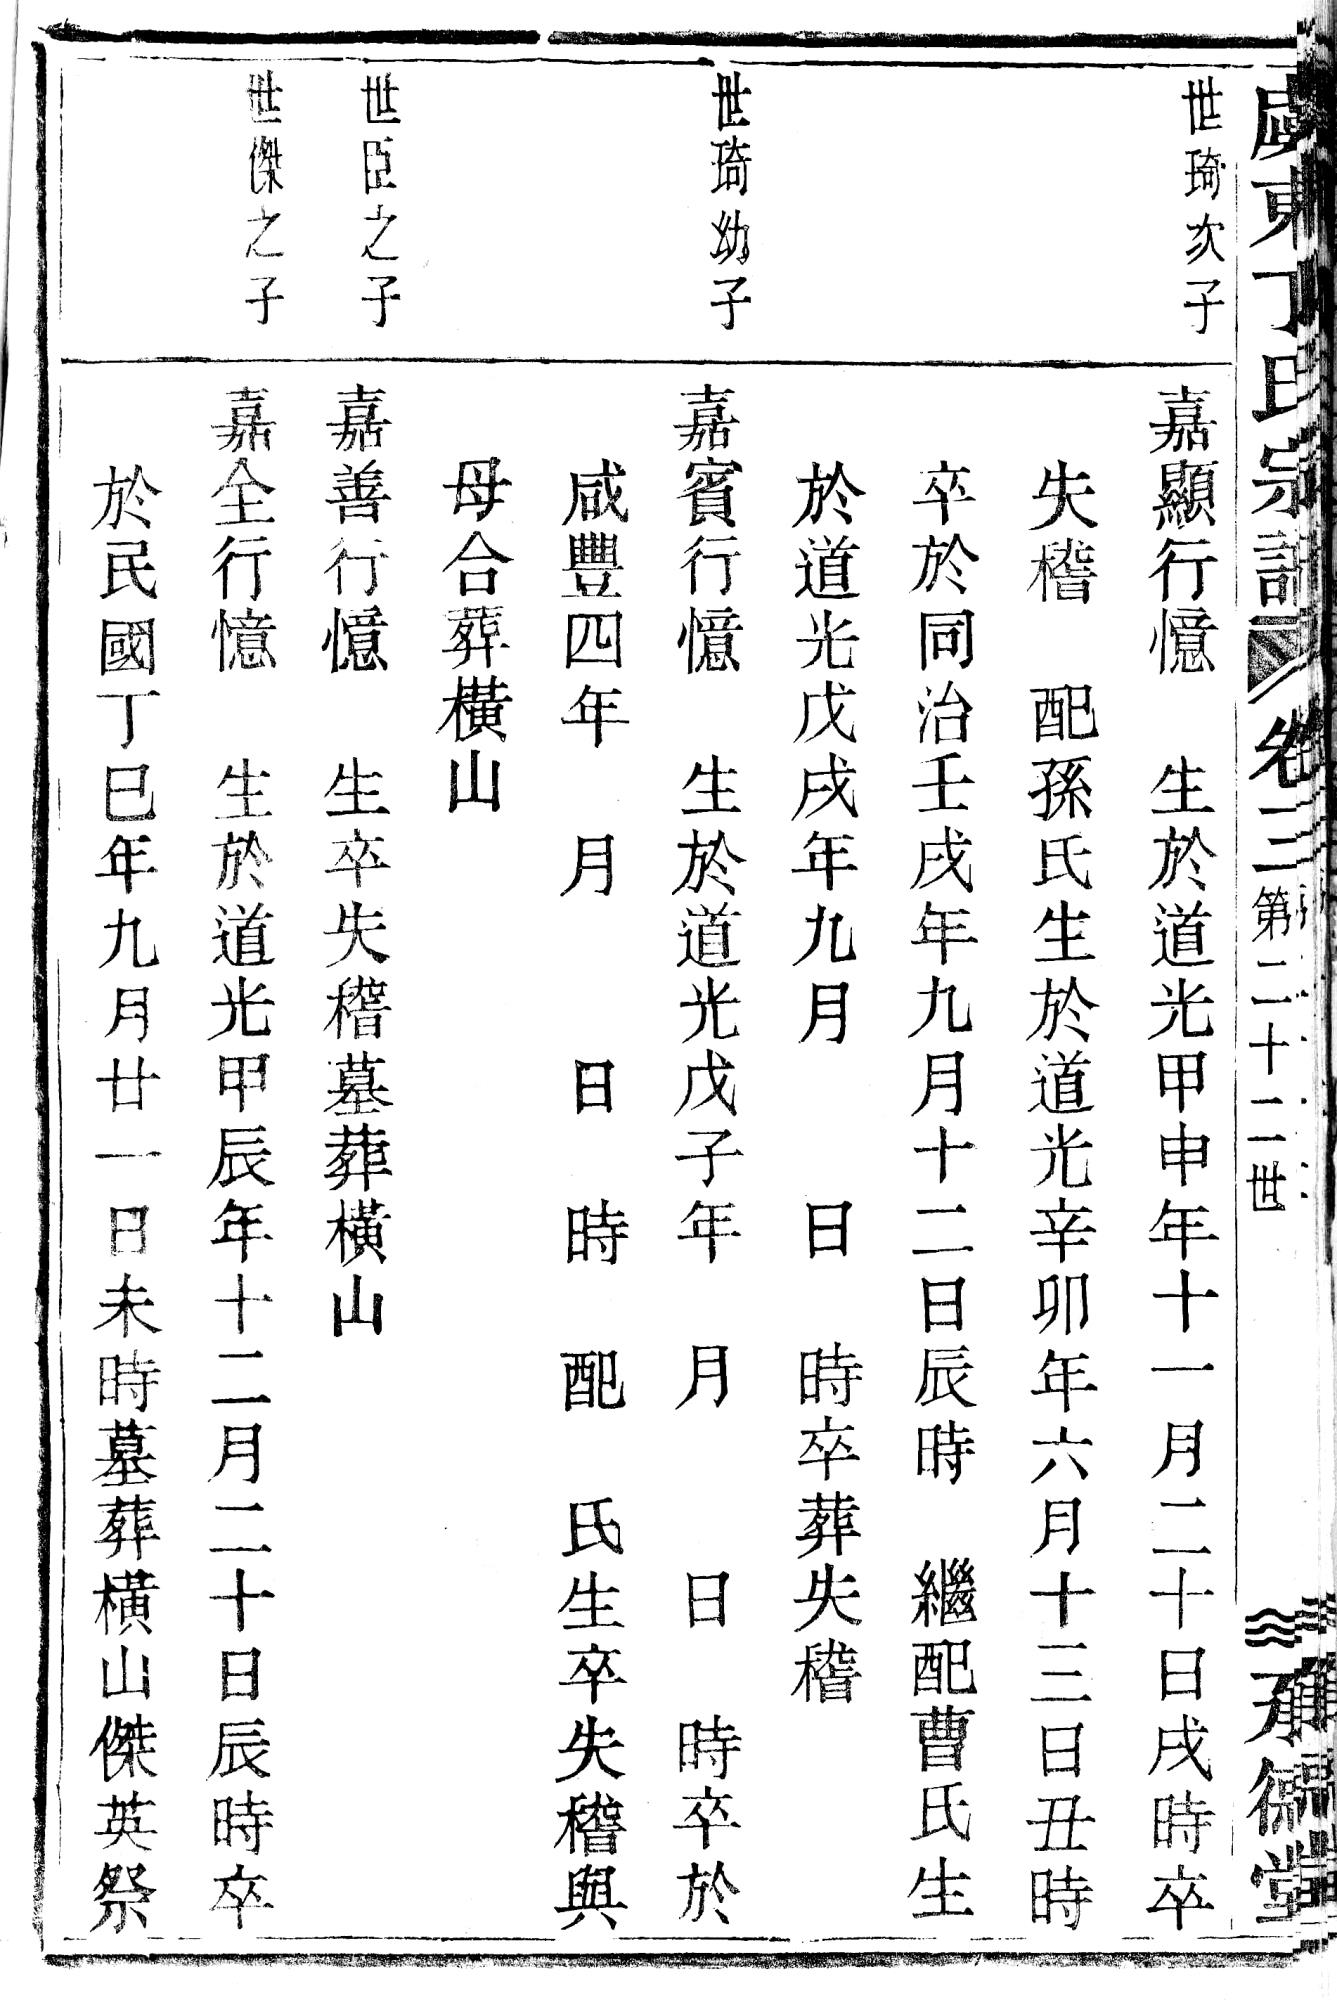 東丁氏宗譜 卷三 第二十二世 承德堂
世琦次子
嘉顯行憶 生於道光甲申年十一月二十日戌時卒
失稽 配孫氏生於道光辛卯年六月十三日丑時
卒於同治壬戌年九月十二日辰時 繼配曹氏生
於道光戊戌年九月 日 時卒葬失稽
世琦幼子
嘉賓行憶 生於道光戊子年 月 日 時卒於
咸豐四年 月 日 時 配 氏生卒失稽與
母合葬橫山
世臣之子
嘉善行憶 生卒失稽墓葬橫山
世傑之子
嘉全行憶 生於道光甲辰年十二月二十日辰時卒
於民國丁巳年九月廿一日未時墓葬橫山傑英祭